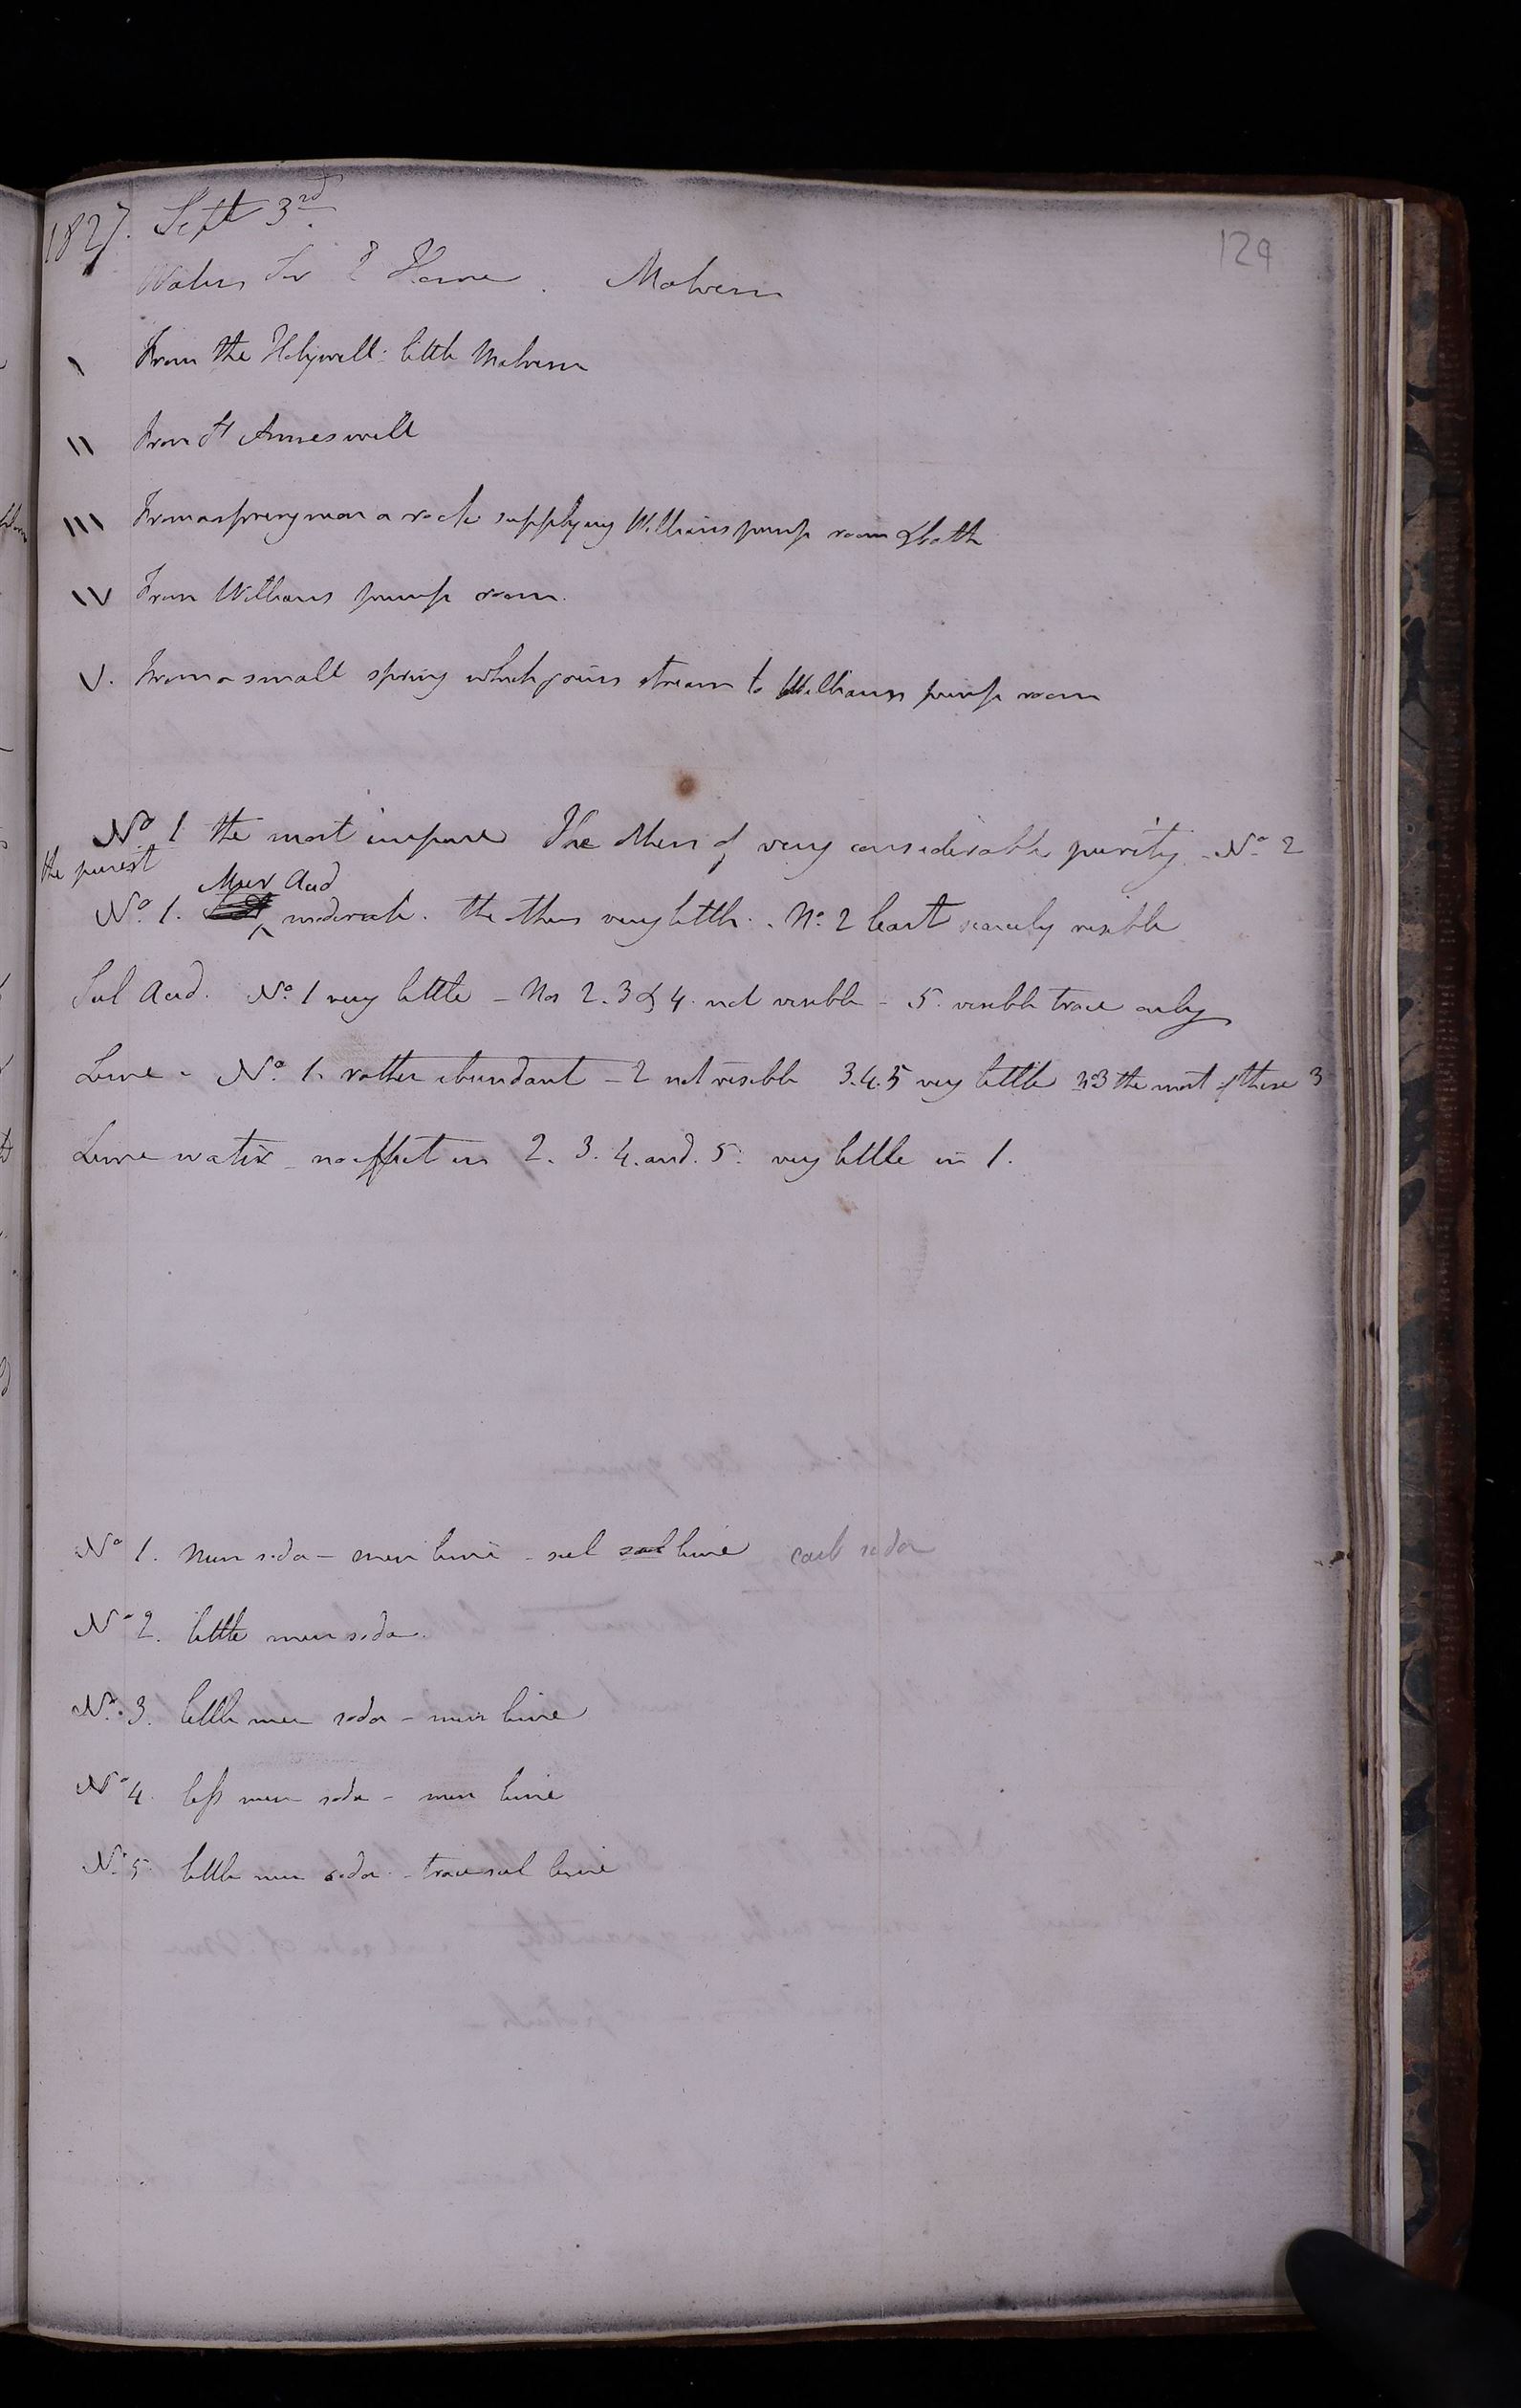 129
1827. Septr 3rd.
Waters Sir E Home. Malvern
\ From the Holywell: little Malvern
\\ From St Annes well
\\\ From a spring near a rock supplying Williams pump room & bath
IV From Williams pump room.
V. From a small spring which joins stream to Williams pump room
No 1 the most impure The others of very considerable purity - No 2
the purest
Mur Acid
No. 1. moderate. the others very little. No. 2 least scarcely visible
Sul Acid. No. 1 very little - Nos 2. 3 & 4. not visible - 5. visible trace only
Lime - No. 1. rather abundant - 2 not visible 3.4.5 very little no3 the most of these 3
Lime water - no effect in 2. 3. 4. and. 5. very little in 1.
No 1. Mur soda - mur lime - sul sod lime carb soda
No 2. little mur soda.
No. 3. little mur soda - mur lime
No 4. less mur soda - mur lime
No. 5 little mur soda - trace sul lime